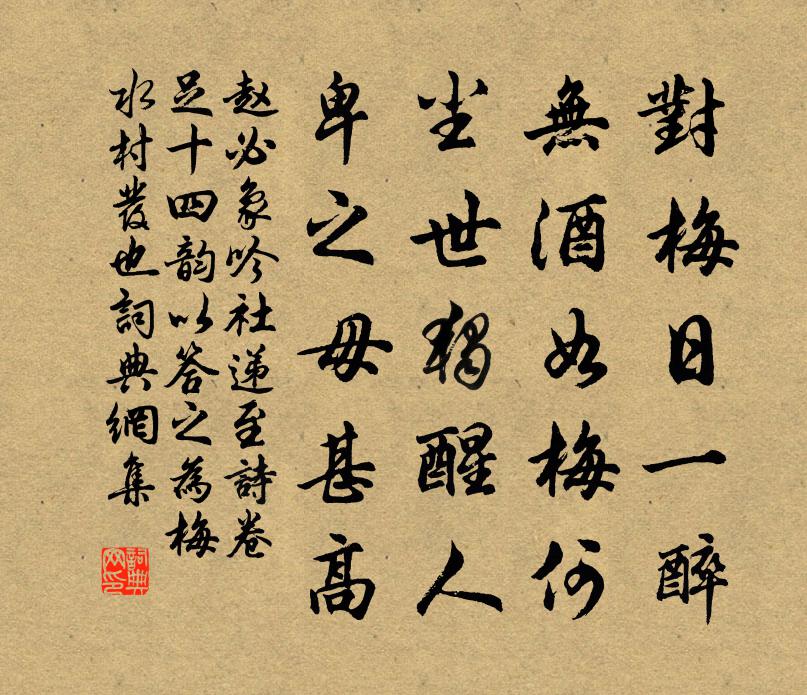 對梅日一醉
無酒如梅何
坐世獨醒人
卑之毋甚高
趙必象吟社递至詩卷
足十四韵以答之為梅
水村發也詞典網集
詞典网印